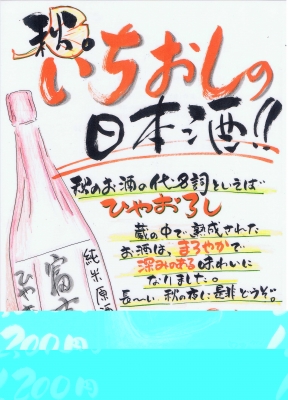 秋。
いちおしの
日本酒!!
秋のお酒の代名詞といえば
ひやおろし
蔵の中で熟成された
お酒は、まろやかで
深みのある味わいに
なりました。
長〜い秋の夜に是非どうぞ。
純米原酒
ひや
200円
200円